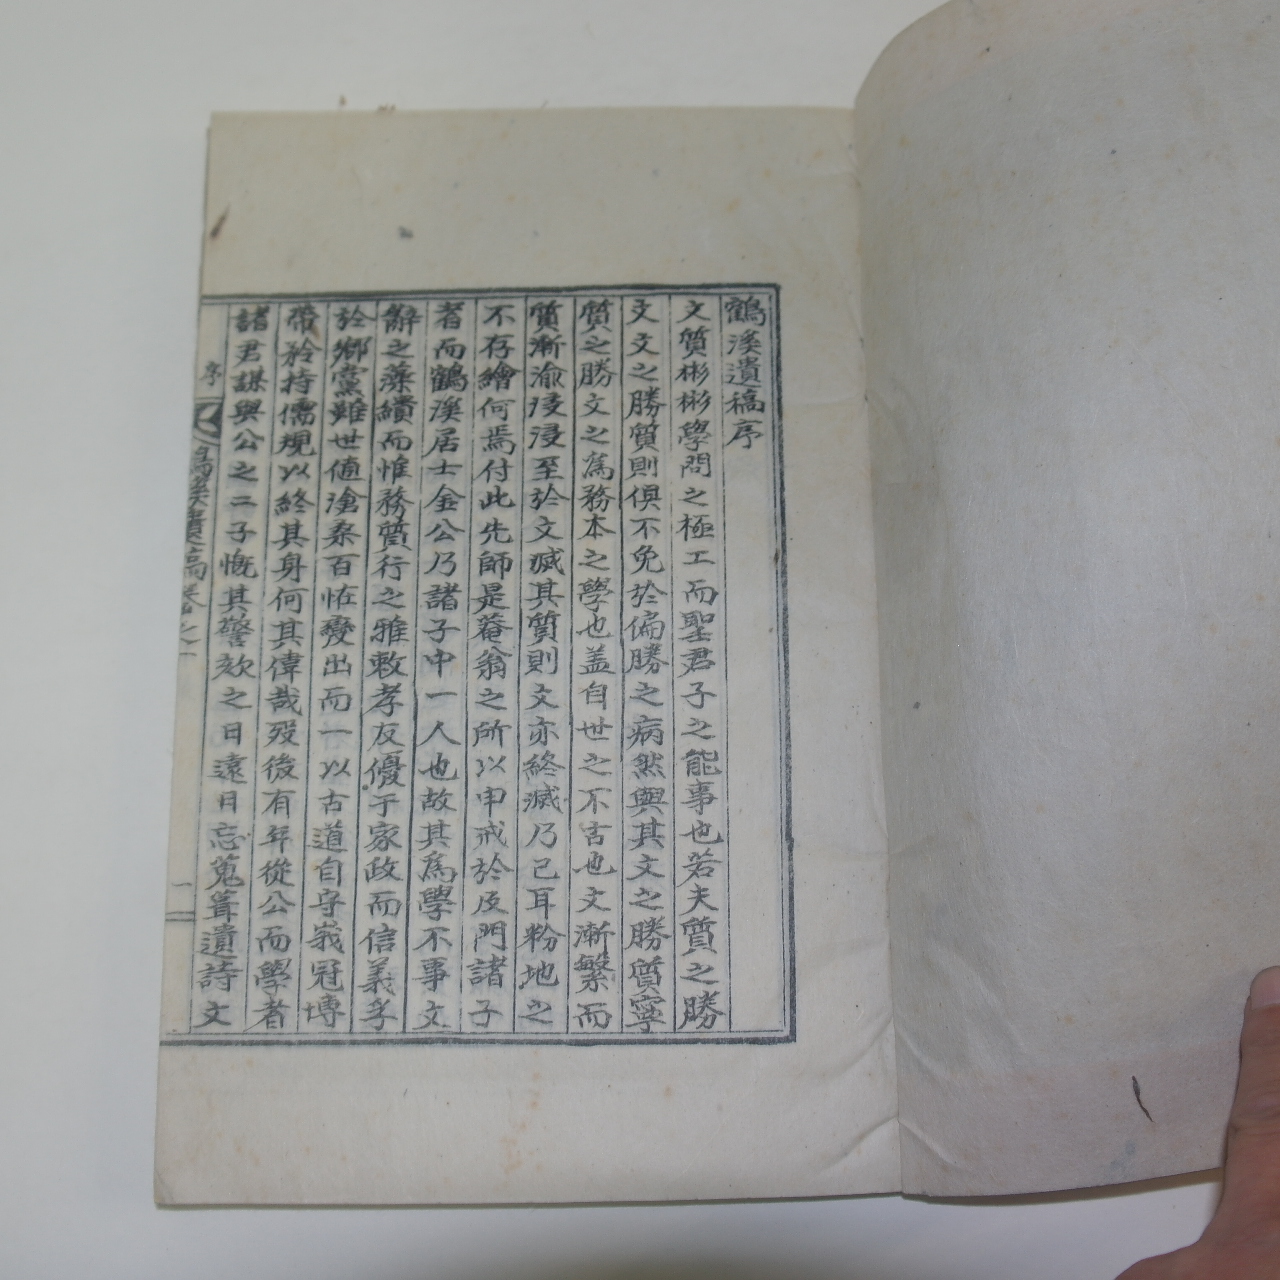 鶴溪遺稿序
文質彬彬學問之極工而聖君子之能事也若夫質之勝
文文之勝質則俱不免於偏勝之病然與其文之勝質寧
質之勝文之爲務本之學也盖自世之不古也文漸繁而
質漸渝浸浸至於文滅其質則文亦終滅乃已耳粉地之
不存繪何焉付此先師是菴翁之所以申戒於及門諸子
者而鶴溪居士金公乃諸子中一人也故其爲學不事文
辭之藻繢而惟務質行之雅敕孝友優于家政而信義孚
於鄉黨雖世値滄桑百恠變出而一以古道自守峩冠博
帶矜持儒規以終其身何其偉哉歿後有年從公而學者
諸君謀與公之二子慨其警欬之日遠日忘蒐葺遺詩文
序
鶴溪遺稿卷之一
一